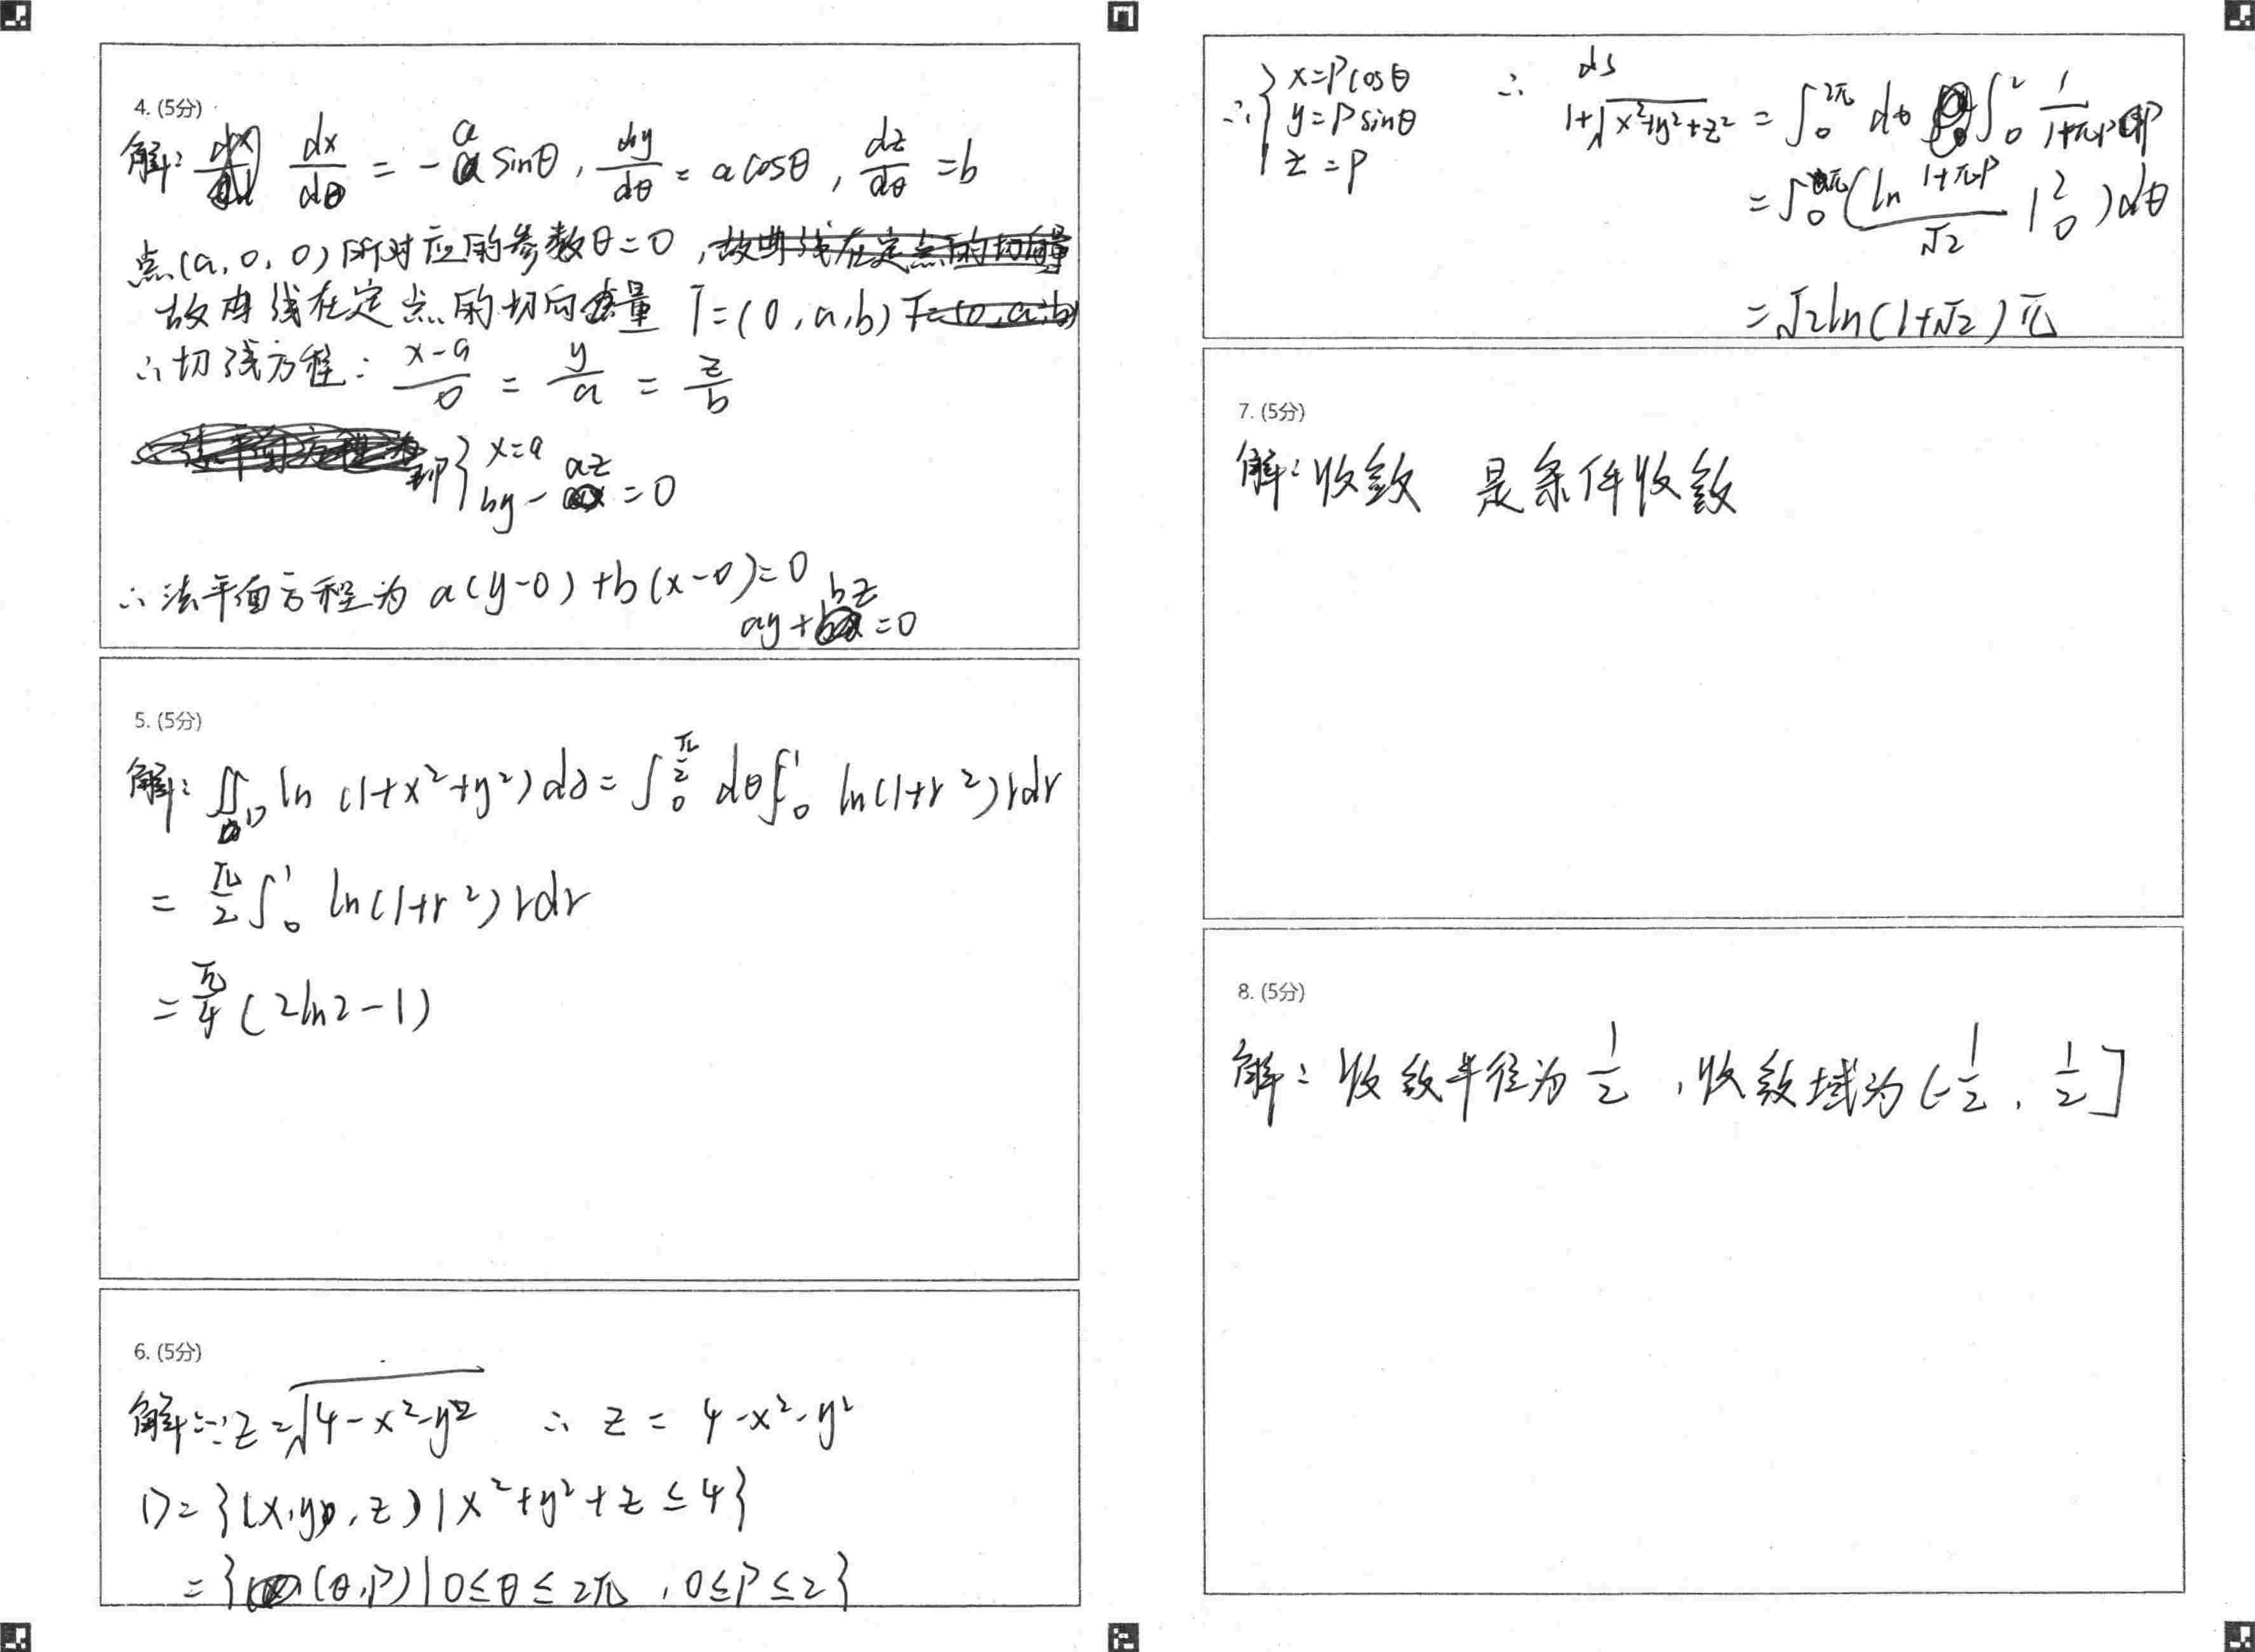 4. (5分)
解: dx/dθ = -a sinθ, dy/dθ = a cosθ, dz/dθ = b
点(a, 0, 0)所对应的参数θ=0, 故曲线在定点的切向量
故曲线在定点的切向量 T=(0, a, b) T=(0, a, b)
∴切线方程: (x-a)/0 = y/a = z/b
∴法平面方程为 即{x=a
by - az = 0
∴法平面方程为 a(y-0)+b(x-0)=0
ay+bz=0
5. (5分)
解: ∬_D ln(1+x²+y²)dσ = ∫₀^(π/2) dθ∫₀¹ ln(1+r²)rdr
= π/2 ∫₀¹ ln(1+r²)rdr
= π/4 (2ln2-1)
6. (5分)
解: ∵z=√(4-x²-y²) ∴ z = 4-x²-y²
D={(x,y,z)|x²+y²+z≤4}
={(θ,ρ)|0≤θ≤2π, 0≤ρ≤2}
∴{x=ρcosθ
y=ρsinθ
z=ρ
∴ ds/(1+√(x²+y²+z²)) = ∫₀^(2π) dθ ∫₀² 1/(1+πρ) dρ
=∫₀^(2π) (ln(1+πρ)/√2 |₀²)dθ
=√2ln(1+√2)π
7. (5分)
解: 收敛 是条件收敛
8. (5分)
解: 收敛半径为 1/2, 收敛域为(-1/2, 1/2]